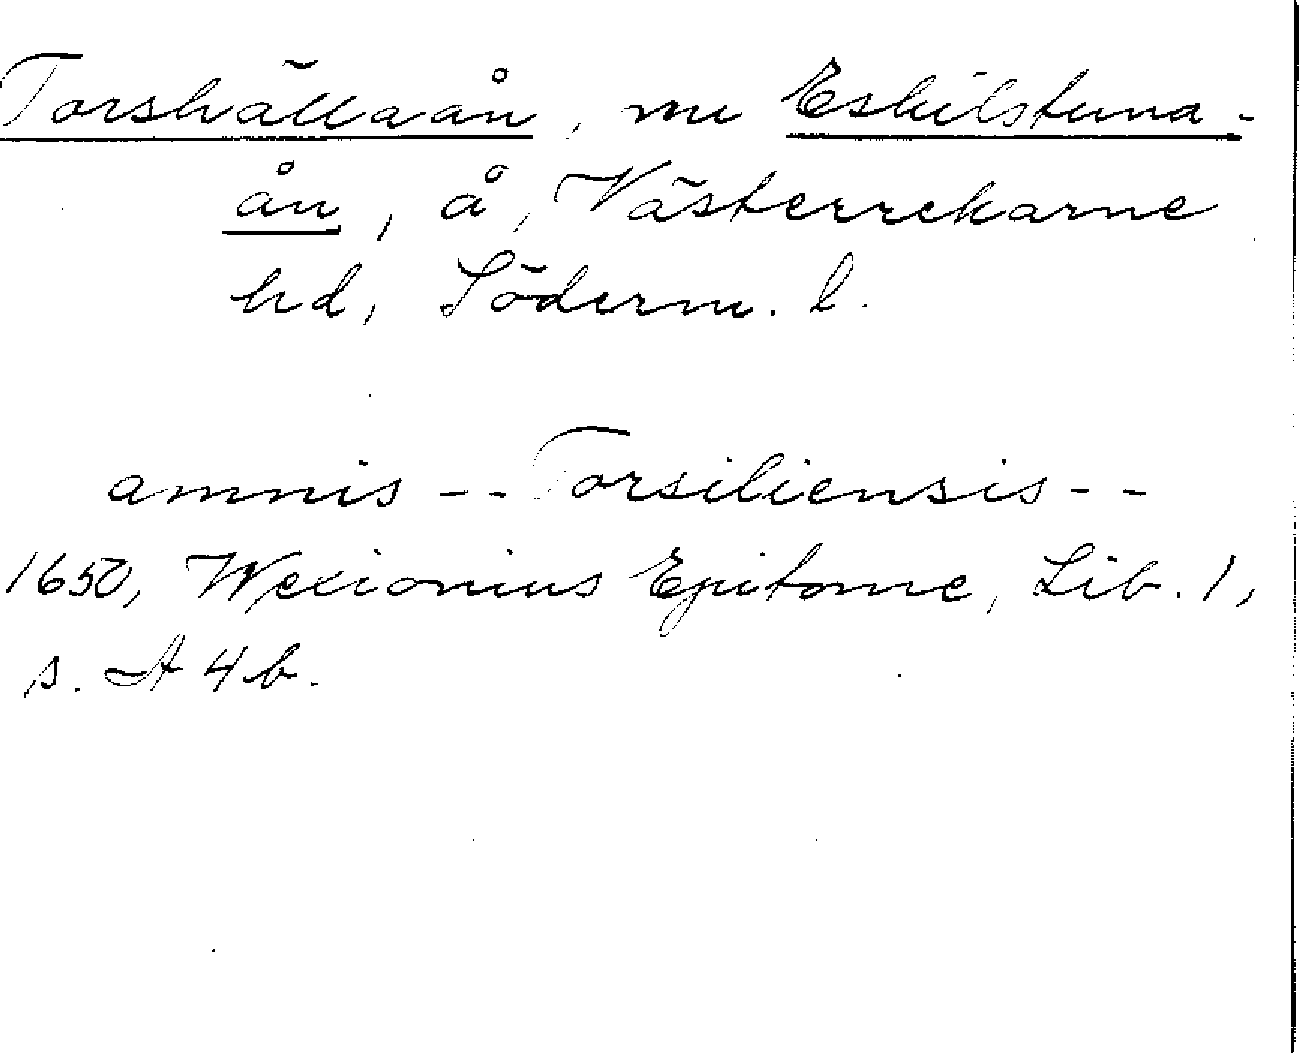 Torshällaån, nu Eskilstuna-
ån, å, Västerrekarne
hd, Söderm. l.
amnis -- Torsiliensis --
1650, Wexionius Epitome, Lib. 1,
s. A 4 b.